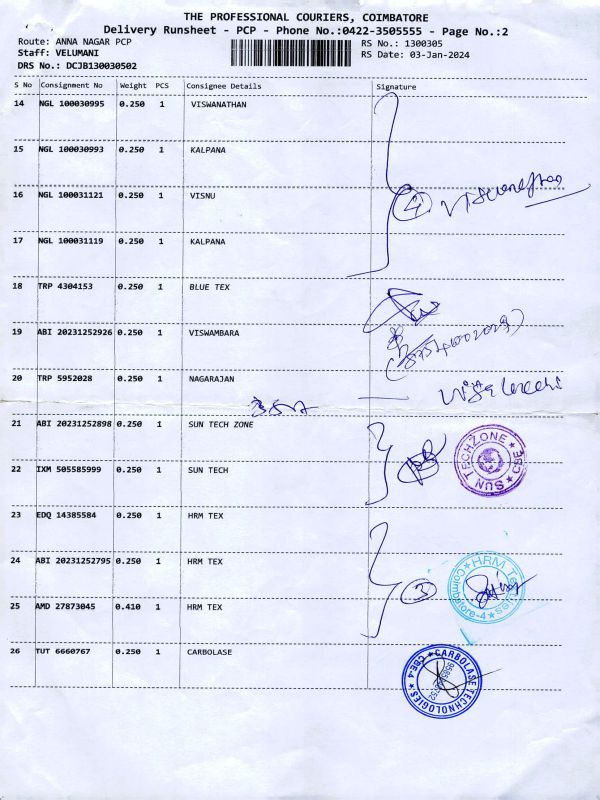 THE PROFESSIONAL COURIERS, COIMBATORE
Delivery Runsheet - PCP - Phone No.:0422-3505555 - Page No.:2
Route: ANNA NAGAR PCP RS No.: 1300305
Staff: VELUMANI RS Date: 03-Jan-2024
DRS No.: DCJB130030502
S No Consignment No Weight PCS Consignee Details Signature
14 NGL 100030995 0.250 1 VISWANATHAN
15 NGL 100030993 0.250 1 KALPANA
16 NGL 100031121 0.250 1 VISNU
4
17 NGL 100031119 0.250 1 KALPANA
18 TRP 4304153 0.250 1 BLUE TEX
19 ABI 20231252926 0.250 1 VISWAMBARA
20 TRP 5952028 0.250 1 NAGARAJAN
21 ABI 20231252898 0.250 1 SUN TECH ZONE
SUN TECH ZONE ★ CBE ★
22 IXM 505585999 0.250 1 SUN TECH
23 EDQ 14385584 0.250 1 HRM TEX
24 ABI 20231252795 0.250 1 HRM TEX
3
25 AMD 27873045 0.410 1 HRM TEX
26 TUT 6660767 0.250 1 CARBOLASE
★ CARBOLASE TECHNOLOGIES ★ CBE-4